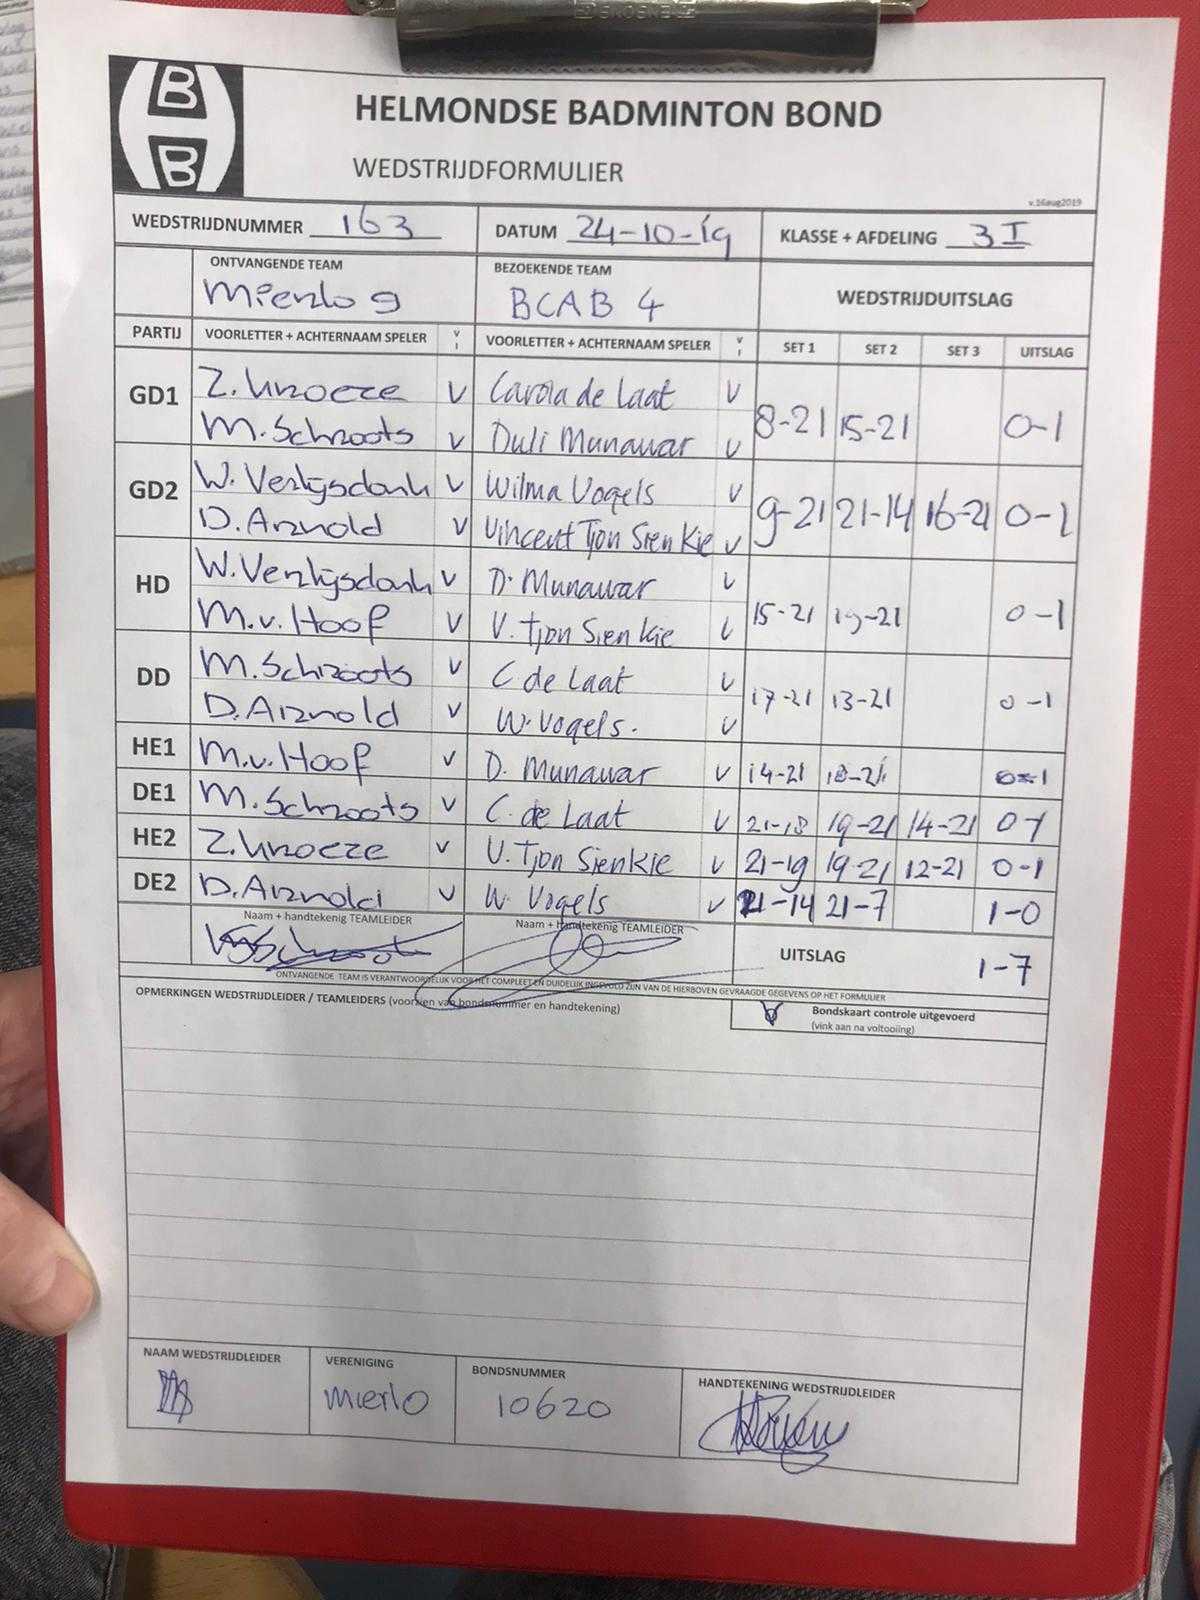 HELMONDSE BADMINTON BOND
WEDSTRIJDFORMULIER
v.16aug2019
WEDSTRIJDNUMMER 163 DATUM 24-10-19 KLASSE + AFDELING 3I
ONTVANGENDE TEAM BEZOEKENDE TEAM WEDSTRIJDUITSLAG
Mierlo 9 BCAB 4
PARTIJ VOORLETTER + ACHTERNAAM SPELER V I VOORLETTER + ACHTERNAAM SPELER V I SET 1 SET 2 SET 3 UITSLAG
GD1 Z. Kroeze V Carola de Laat V 8-21 15-21 0-1
M. Schroots V Duli Munawar V
GD2 W. Verlijsdonk V Wilma Vogels V 9-21 21-14 16-21 0-1
D. Arnold V Vincent Tjon Sien Kie V
HD W. Verlijsdonk V D. Munawar V 15-21 19-21 0-1
M.v. Hoof V V. Tjon Sien Kie V
DD M. Schroots V C de Laat V 17-21 13-21 0-1
D. Arnold V W. Vogels. V
HE1 M.v. Hoof V D. Munawar V 14-21 18-21 0-1
DE1 M. Schroots V C. de Laat V 21-18 19-21 14-21 0-1
HE2 Z. Kroeze V V. Tjon Sienkie V 21-19 19-21 12-21 0-1
DE2 D. Arnold V W Vogels V 21-14 21-7 1-0
Naam + handtekenig TEAMLEIDER Naam + handtekenig TEAMLEIDER
UITSLAG 1-7
ONTVANGENDE TEAM IS VERANTWOORDELIJK VOOR HET COMPLEET EN DUIDELIJK INGEVULD ZIJN VAN DE HIERBOVEN GEVRAAGDE GEGEVENS OP HET FORMULIER
OPMERKINGEN WEDSTRIJDLEIDER / TEAMLEIDERS (voorzien van bondsnummer en handtekening)
V Bondskaart controle uitgevoerd
(vink aan na voltooiing)
NAAM WEDSTRIJDLEIDER VERENIGING BONDSNUMMER HANDTEKENING WEDSTRIJDLEIDER
Mierlo 10620